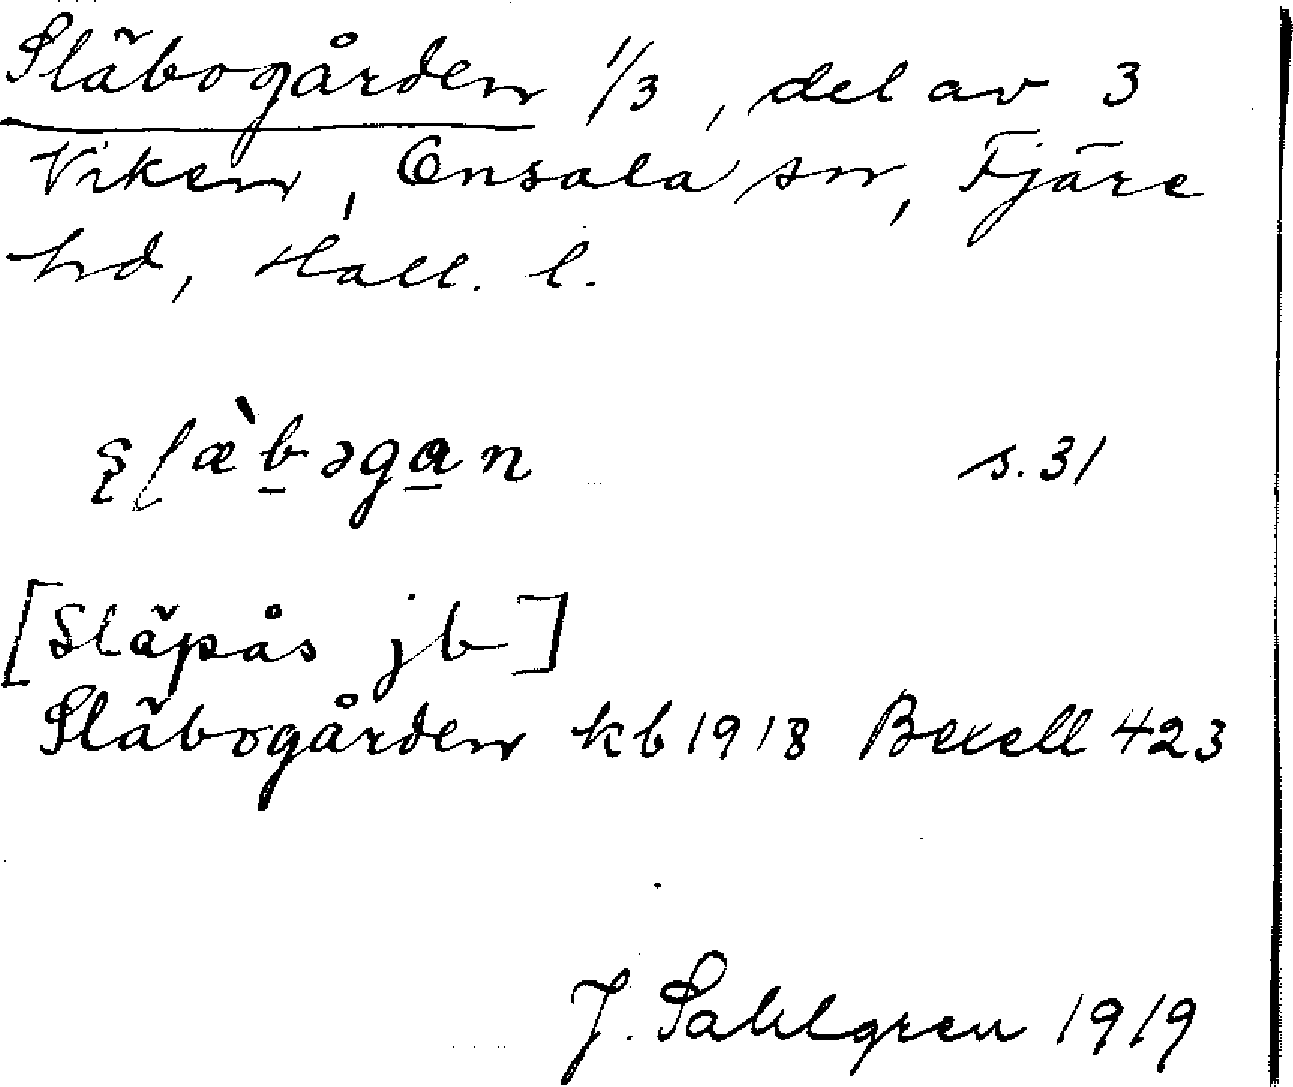 Släbogården 1/3, del av 3
Viken, Onsala sn, Fjäre
hd, Hall. l.
s. 31
[Släpås jb]
Släbogården kb 1918 Bexell 423
J. Sahlgren 1919